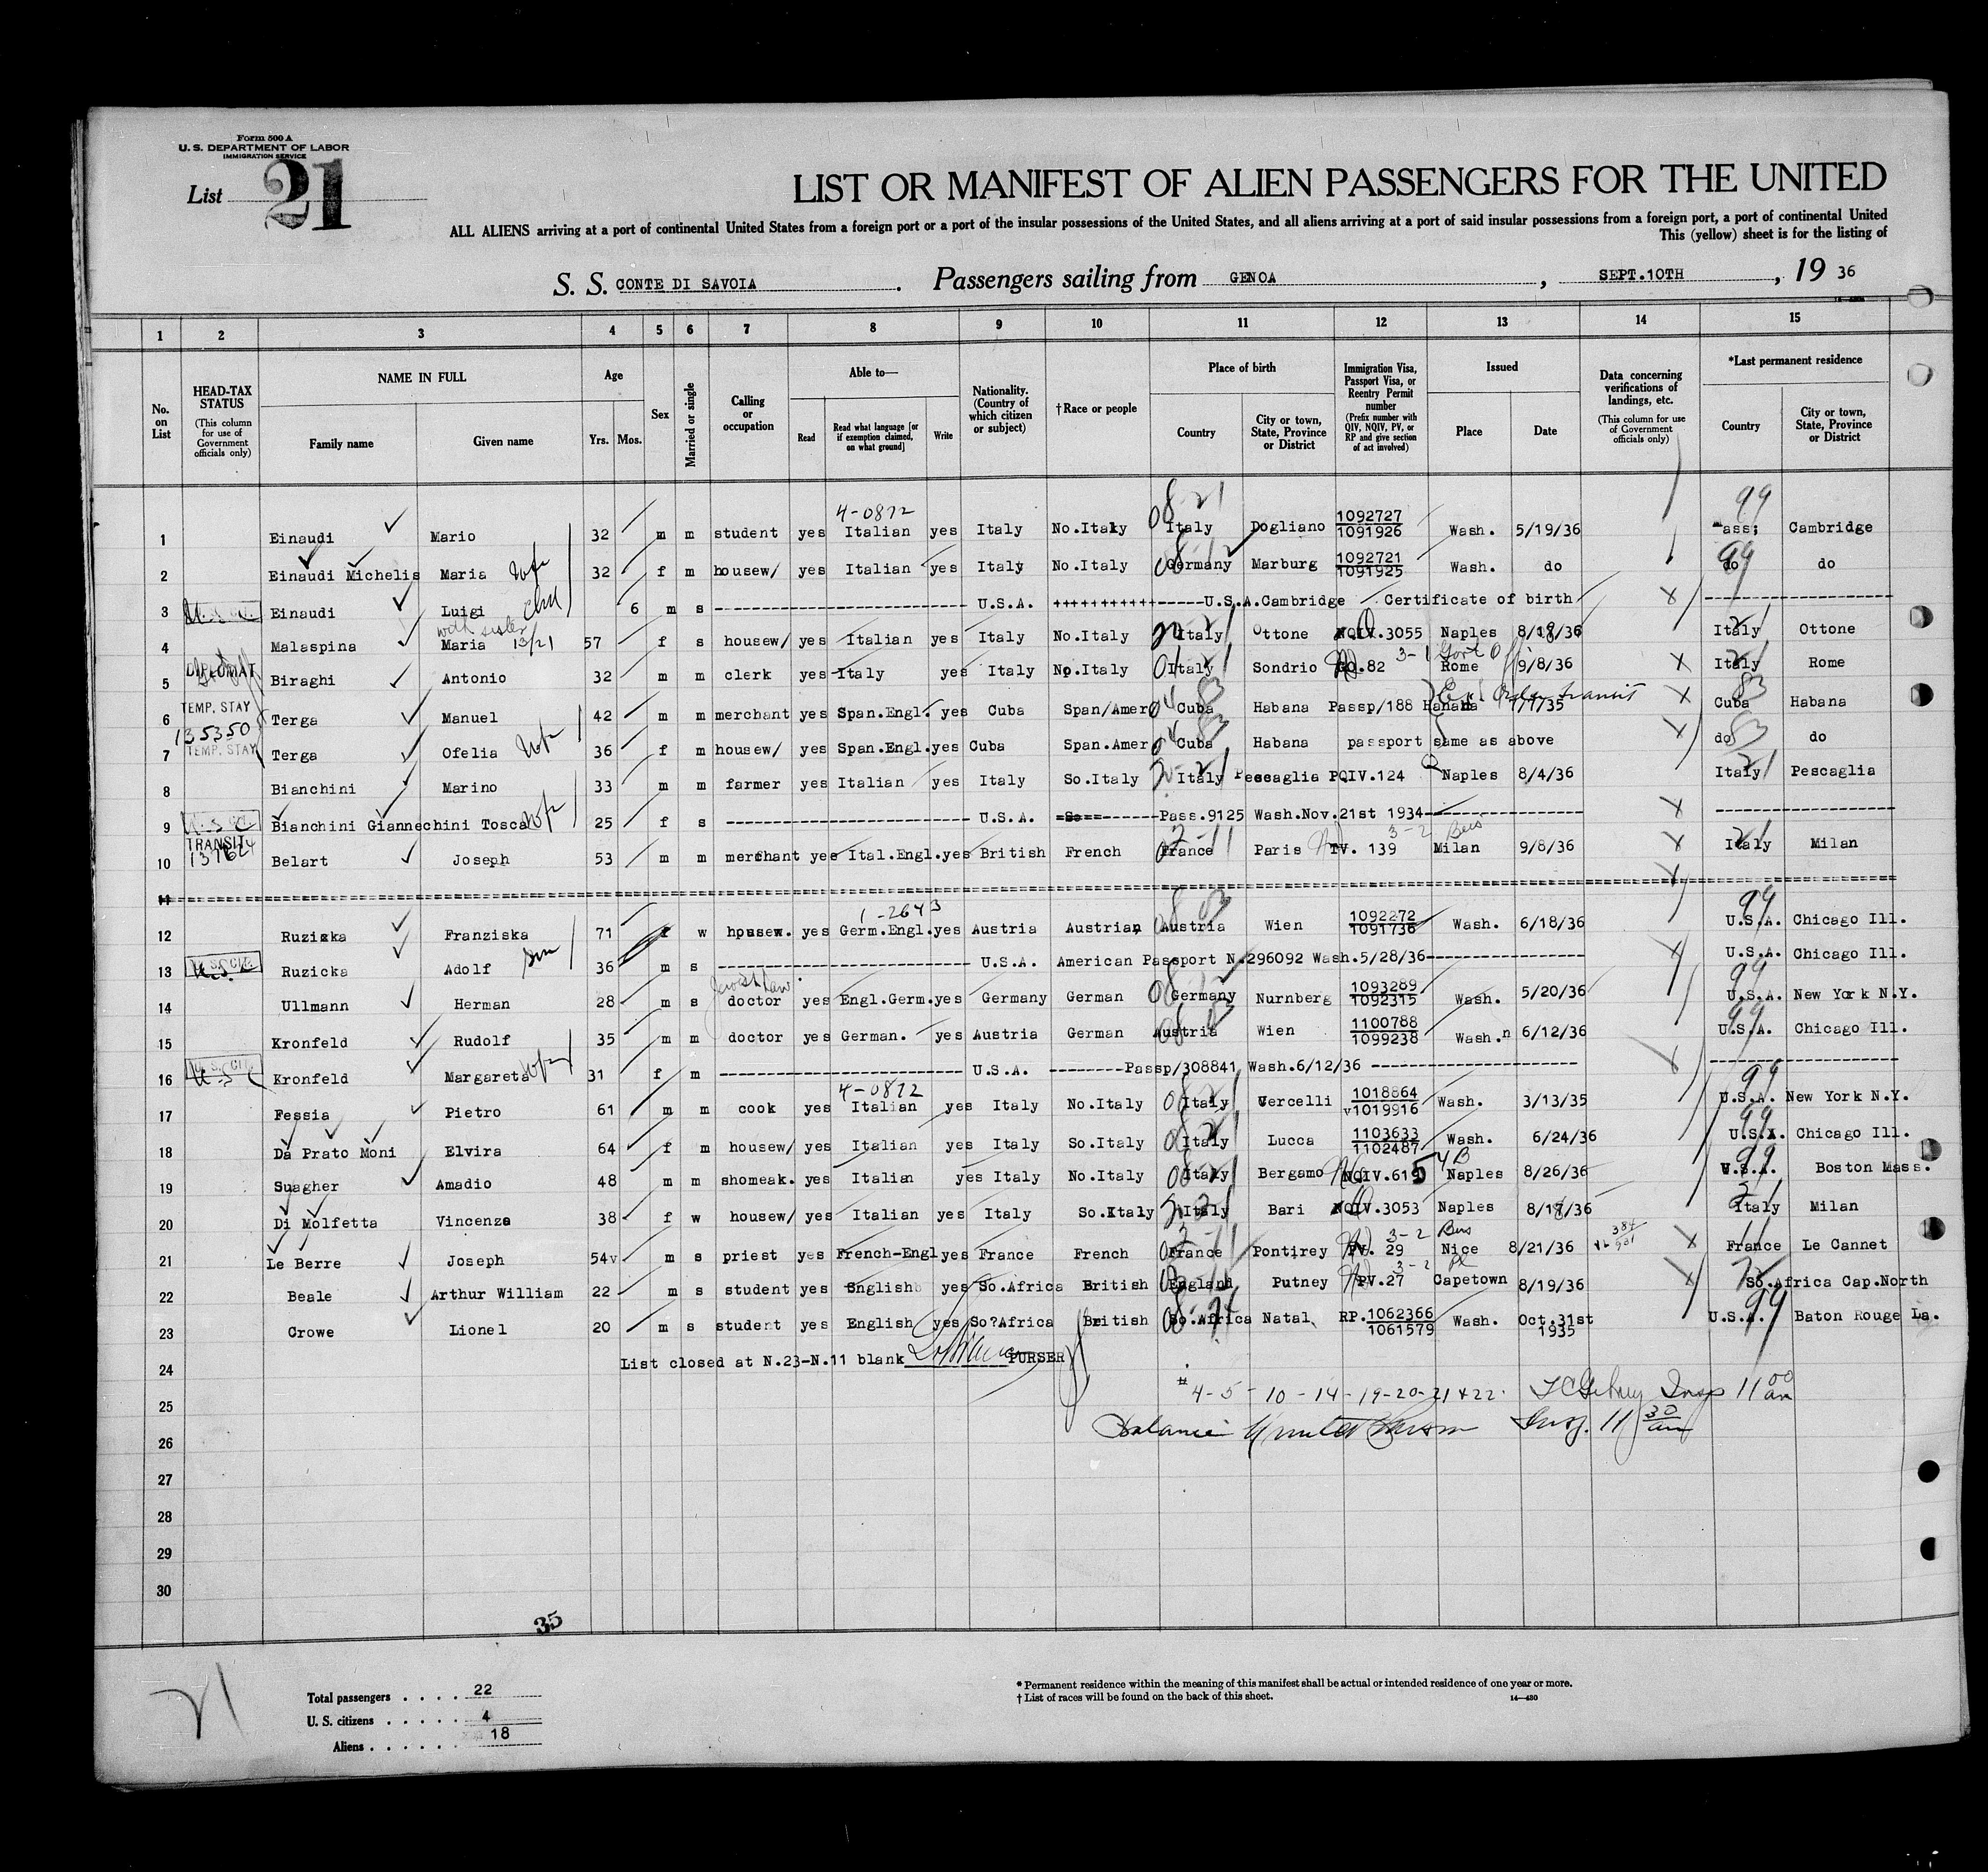 Form 500 A
U. S. DEPARTMENT OF LABOR
IMMIGRATION SERVICE
List 21
LIST OR MANIFEST OF ALIEN PASSENGERS FOR THE UNITED
ALL ALIENS arriving at a port of continental United States from a foreign port or a port of the insular possessions of the United States, and all aliens arriving at a port of said insular possessions from a foreign port, a port of continental United
This (yellow) sheet is for the listing of
S. S. CONTE DI SAVOIA . Passengers sailing from GENOA , SEPT.10TH , 19 36
1 2 3 4 5 6 7 8 9 10 11 12 13 14 15
No. on List
HEAD-TAX STATUS (This column for use of Government officials only)
NAME IN FULL Family name Given name
Age Yrs. Mos.
Sex
Married or single
Calling or occupation
Able to— Read Read what language [or if exemption claimed, on what ground] Write
Nationality. (Country of which citizen or subject)
†Race or people
Place of birth Country City or town, State, Province or District
Immigration Visa, Passport Visa, or Reentry Permit number (Prefix number with QIV, NQIV, PV, or RP and give section of act involved)
Issued Place Date
Data concerning verifications of landings, etc. (This column for use of Government officials only)
*Last permanent residence Country City or town, State, Province or District
4-0872 08-21 99
1 Einaudi Mario 32 m m student yes Italian yes Italy No.Italy Italy Dogliano 1092727 1091926 Wash. 5/19/36 Mass; Cambridge
2 Einaudi Michelis Maria Wife 32 f m housew/ yes Italian yes Italy No.Italy Germany Marburg 1092721 1091925 Wash. do do do
3 U.S. Cit. Einaudi Luigi 6 m s ---- U.S.A. +++++++++++-----U.S.A.Cambridge Certificate of birth
with sister 13/21
4 Malaspina Maria 57 f s housew/ yes Italian yes Italy No.Italy Italy Ottone NQIV.3055 Naples 8/18/36 Italy Ottone
5 DIPLOMAT Biraghi Antonio 32 m m clerk yes Italy yes Italy No.Italy Italy Sondrio GO.82 3-1 Gov't Off Rome 9/8/36 Italy Rome
6 TEMP. STAY Terga Manuel 42 m m merchant yes Span.Engl. yes Cuba Span/Amer Cuba Habana Passp/188 Habana 7/1/35 Cuba Habana
135350
7 TEMP. STAY Terga Ofelia Wife 36 f m housew/ yes Span.Engl.yes Cuba Span.Amer Cuba Habana passport same as above do do
8 Bianchini Marino 33 m m farmer yes Italian yes Italy So.Italy Italy Pescaglia PQIV.124 Naples 8/4/36 Italy Pescaglia
9 U.S.C. Bianchini Giannechini Tosca Wife 25 f s ---- U.S.A. Pass.9125 Wash.Nov.21st 1934
10 TRANSIT Belart Joseph 53 m m merchant yes Ital.Engl.yes British French France Paris TV. 139 Milan 9/8/36 Italy Milan
11
1-2643
12 Ruzicka Franziska 71 f w housew. yes Germ.Engl.yes Austria Austrian Austria Wien 1092272 1091736 Wash. 6/18/36 U.S.A. Chicago Ill.
13 U.S. Cit. Ruzicka Adolf Son 36 m s ---- U.S.A. American Passport N.296092 Wash.5/28/36 U.S.A. Chicago Ill.
14 Ullmann Herman 28 m s doctor yes Engl.Germ.yes Germany German Germany Nurnberg 1093289 1092315 Wash. 5/20/36 U.S.A. New York N.Y.
15 Kronfeld Rudolf 35 m m doctor yes German. yes Austria German Austria Wien 1100788 1099238 Wash.n 6/12/36 U.S.A. Chicago Ill.
16 U.S. Cit. Kronfeld Margareta Wife 31 f m ---- U.S.A. --------Passp/308841 Wash.6/12/36
4-0872
17 Fessia Pietro 61 m m cook yes Italian yes Italy No.Italy Italy Vercelli 1018864 v1019916 Wash. 3/13/35 U.S.A. New York N.Y.
18 Da Prato Moni Elvira 64 f m housew/ yes Italian yes Italy So.Italy Italy Lucca 1103633 1102487 Wash. 6/24/36 U.S.A. Chicago Ill.
19 Suagher Amadio 48 m m shomeak. yes Italian yes Italy No.Italy Italy Bergamo NQIV.615 4B Naples 8/26/36 U.S.A. Boston Mass.
20 Di Molfetta Vincenza 38 f w housew/ yes Italian yes Italy So.Italy Italy Bari NQIV.3053 Naples 8/18/36 Italy Milan
21 Le Berre Joseph 54 m s priest yes French-Engl yes France French France Pontirey PV. 29 3-2 Bus Nice 8/21/36 France Le Cannet
22 Beale Arthur William 22 m s student yes English yes So.Africa British England Putney PV.27 3-2 Pl Capetown 8/19/36 So.Africa Cap.North
23 Crowe Lionel 20 m s student yes English yes So?Africa British So.Africa Natal RP.1062366 1061579 Wash. Oct.31st 1935 U.S.A. Baton Rouge La.
24 List closed at N.23-N.11 blank PURSER
# 4-5-10-14-19-20-21 & 22. Insp 11 00 am
25
Balance Insp. 11 30 am
26
27
28
29
30
35
21
Total passengers . . . . 22
U. S. citizens . . . . . 4
Aliens . . . . . . 18
* Permanent residence within the meaning of this manifest shall be actual or intended residence of one year or more.
† List of races will be found on the back of this sheet.
14—480